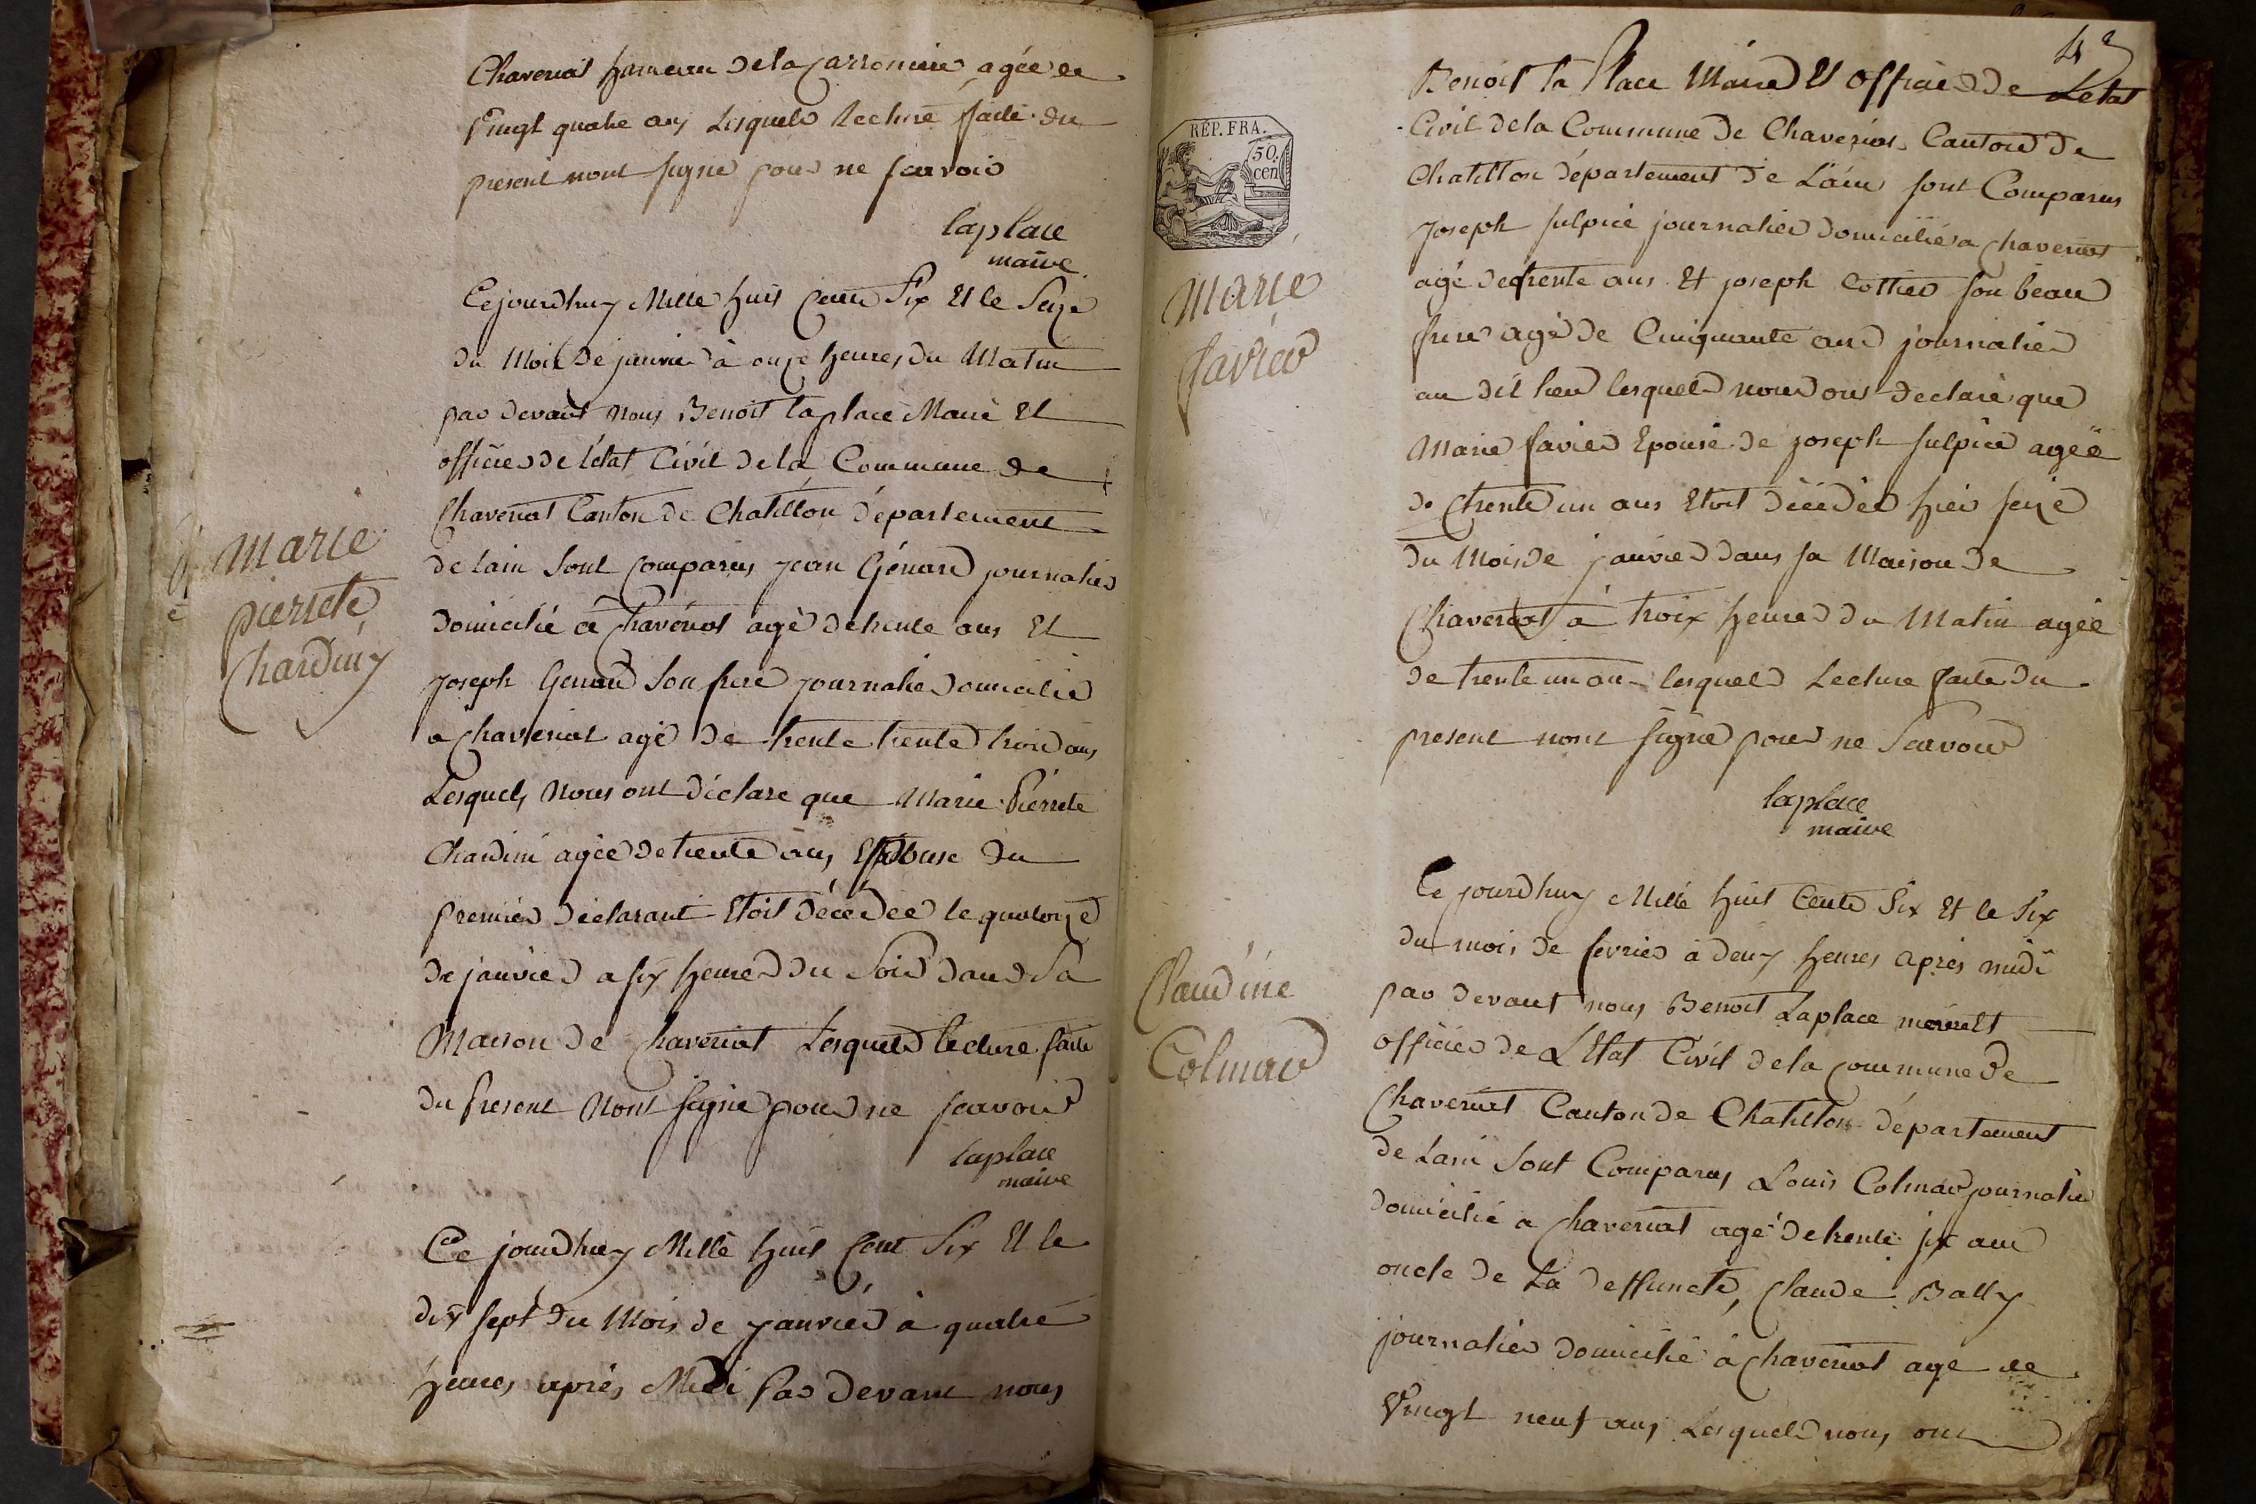 Chaveriat hameau de la Carronnire agée de
Vingt quatre ans Lesquels lecture faite du
present nont signe pour ne scavoir
laplace
maire
Cejourdhuy Mille huit Cent Six Et le Seize
du Mois de janvier à onze heures du Matin
par devant Nous Benoit laplace Maire Et
officier de létat Civil de la Commune de
Chaveriat Canton de Chatillon département
de lain Sont comparus jean Génard journalier
domicilié a Chavériat agé de trente ans Et
joseph Genard Son frere journalier domicilié
a Chaveriat agé de trente trente trois ans
Lesquels Nous ont déclare que Marie Pierrete
Chardini agée de trente ans Epouse du
premier déclarant Etoit décédée le quatorze
de janvier a six heures du Soir dans Sa
Maison de Chaveriat Lesquels lecture faite
du Present Nont signe pour ne scavoir
laplace
maire
Ce jourdhuy Mille huit Cent Six Et le
dix sept du Mois de janvier à quatre
heures après Midi Par devant nous
Marie
pierrete
Chardiny
42
Benoit la Place Maire Et officier de Letat
Civil de la Commune de Chaveriat Canton de
Chatillon département de Lain sont Comparus
joseph sulpice journalier domicilié a Chaveriat
agé de trente ans Et joseph Cottier son beau
frere agé de Cinquante ans journalier
au dit lieu lesquels nous ont declaré que
Marie favier Epouse de joseph sulpice agée
de trente un ans Etoit décédée hier seize
du Mois de janvier dans sa Maison de
Chaveriat à troix heures du Matin agée
de trente un an lesquels Lecture faite du
present nont signé pour ne Scavoir
laplace
maire
Ce jourdhuy Mille huit Cents Six Et le Six
du mois de fevrier à deux heures après midi
par devant nous Benoit Laplace maire Et
officier de LEtat Civil de la commune de
Chaveriat Canton de Chatillon département
de Lain Sont Comparus Louis Colmar journalier
domicilié a Chaveriat agé de trente six ans
oncle de La deffuncte, Claude Bally
journalier domicilié à Chaveriat age de
Vingt neuf ans Lesquels nous ont
RÉP. FRA.
50.
cen
Marie
favier
Claudine
Colmar